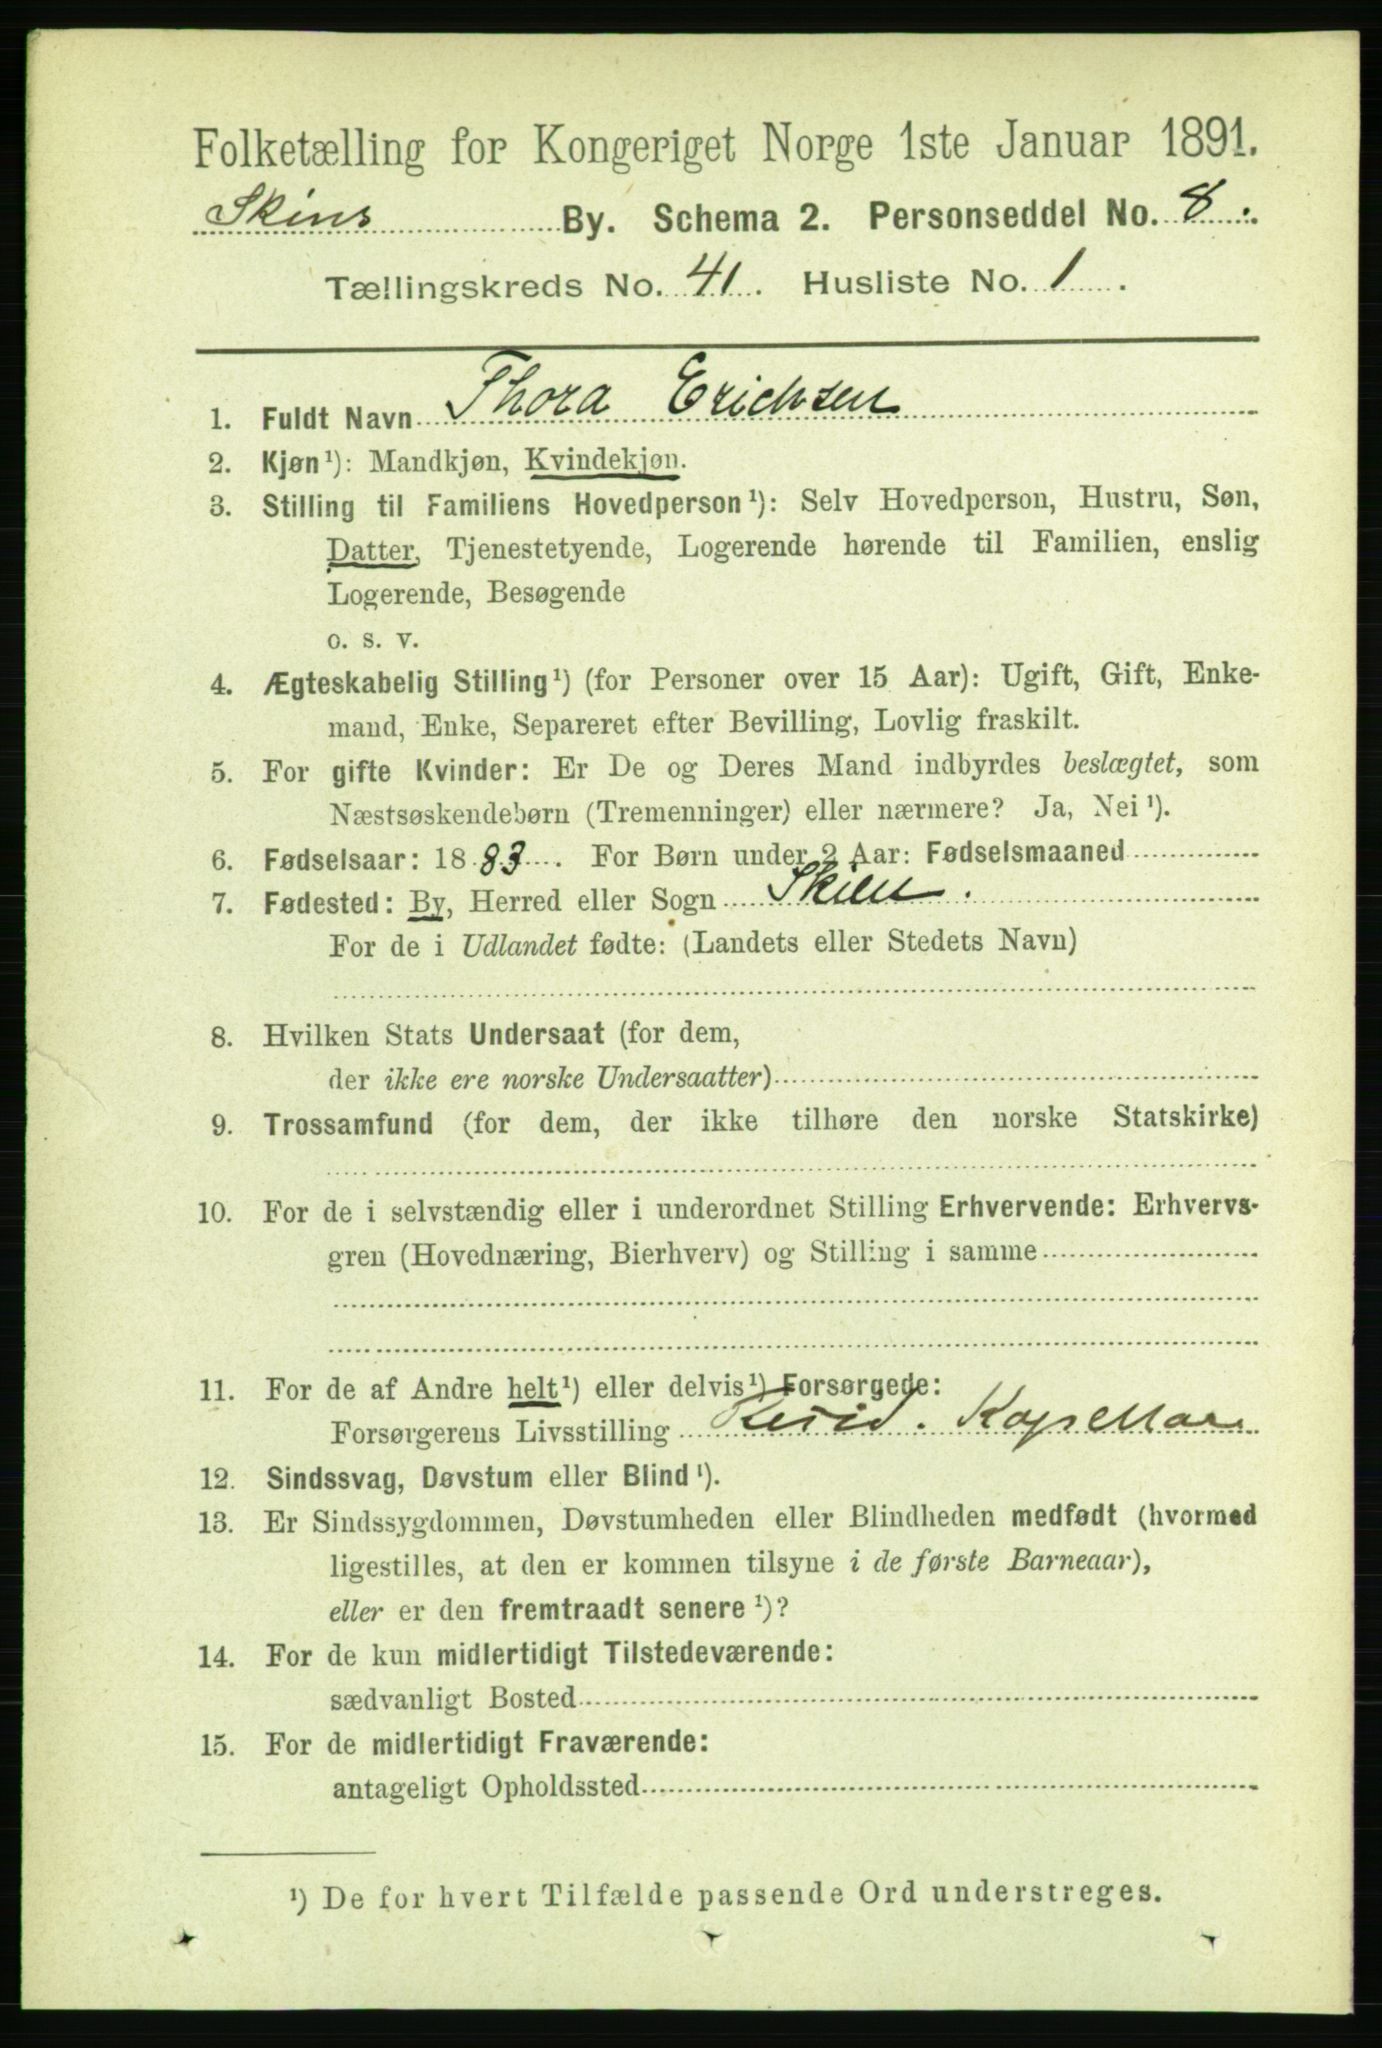 Folketælling for Kongeriget Norge 1ste Januar 1891.
Skiens By. Schema 2. Personseddel No. 8.
Tællingskreds No. 41. Husliste No. 1.
1. Fuldt Navn Thora Erichsen
2. Kjøn¹): Mandkjøn, Kvindekjøn.
3. Stilling til Familiens Hovedperson¹): Selv Hovedperson, Hustru, Søn,
Datter, Tjenestetyende, Logerende hørende til Familien, enslig
Logerende, Besøgende
o. s. v.
4. Ægteskabelig Stilling¹) (for Personer over 15 Aar): Ugift, Gift, Enke-
mand, Enke, Separeret efter Bevilling, Lovlig fraskilt.
5. For gifte Kvinder: Er De og Deres Mand indbyrdes beslægtet, som
Næstsøskendebørn (Tremenninger) eller nærmere? Ja, Nei¹).
6. Fødselsaar: 1883. For Børn under 2 Aar: Fødselsmaaned
7. Fødested: By, Herred eller Sogn Skien.
For de i Udlandet fødte: (Landets eller Stedets Navn)
8. Hvilken Stats Undersaat (for dem,
der ikke ere norske Undersaatter)
9. Trossamfund (for dem, der ikke tilhøre den norske Statskirke)
10. For de i selvstændig eller i underordnet Stilling Erhvervende: Erhvervs-
gren (Hovednæring, Bierhverv) og Stilling i samme
11. For de af Andre helt¹) eller delvis¹) Forsørgede:
Forsørgerens Livsstilling Resid. Kapellan
12. Sindssvag, Døvstum eller Blind¹).
13. Er Sindssygdommen, Døvstumheden eller Blindheden medfødt (hvormed
ligestilles, at den er kommen tilsyne i de første Barneaar),
eller er den fremtraadt senere¹)?
14. For de kun midlertidigt Tilstedeværende:
sædvanligt Bosted
15. For de midlertidigt Fraværende:
antageligt Opholdssted
¹) De for hvert Tilfælde passende Ord understreges.